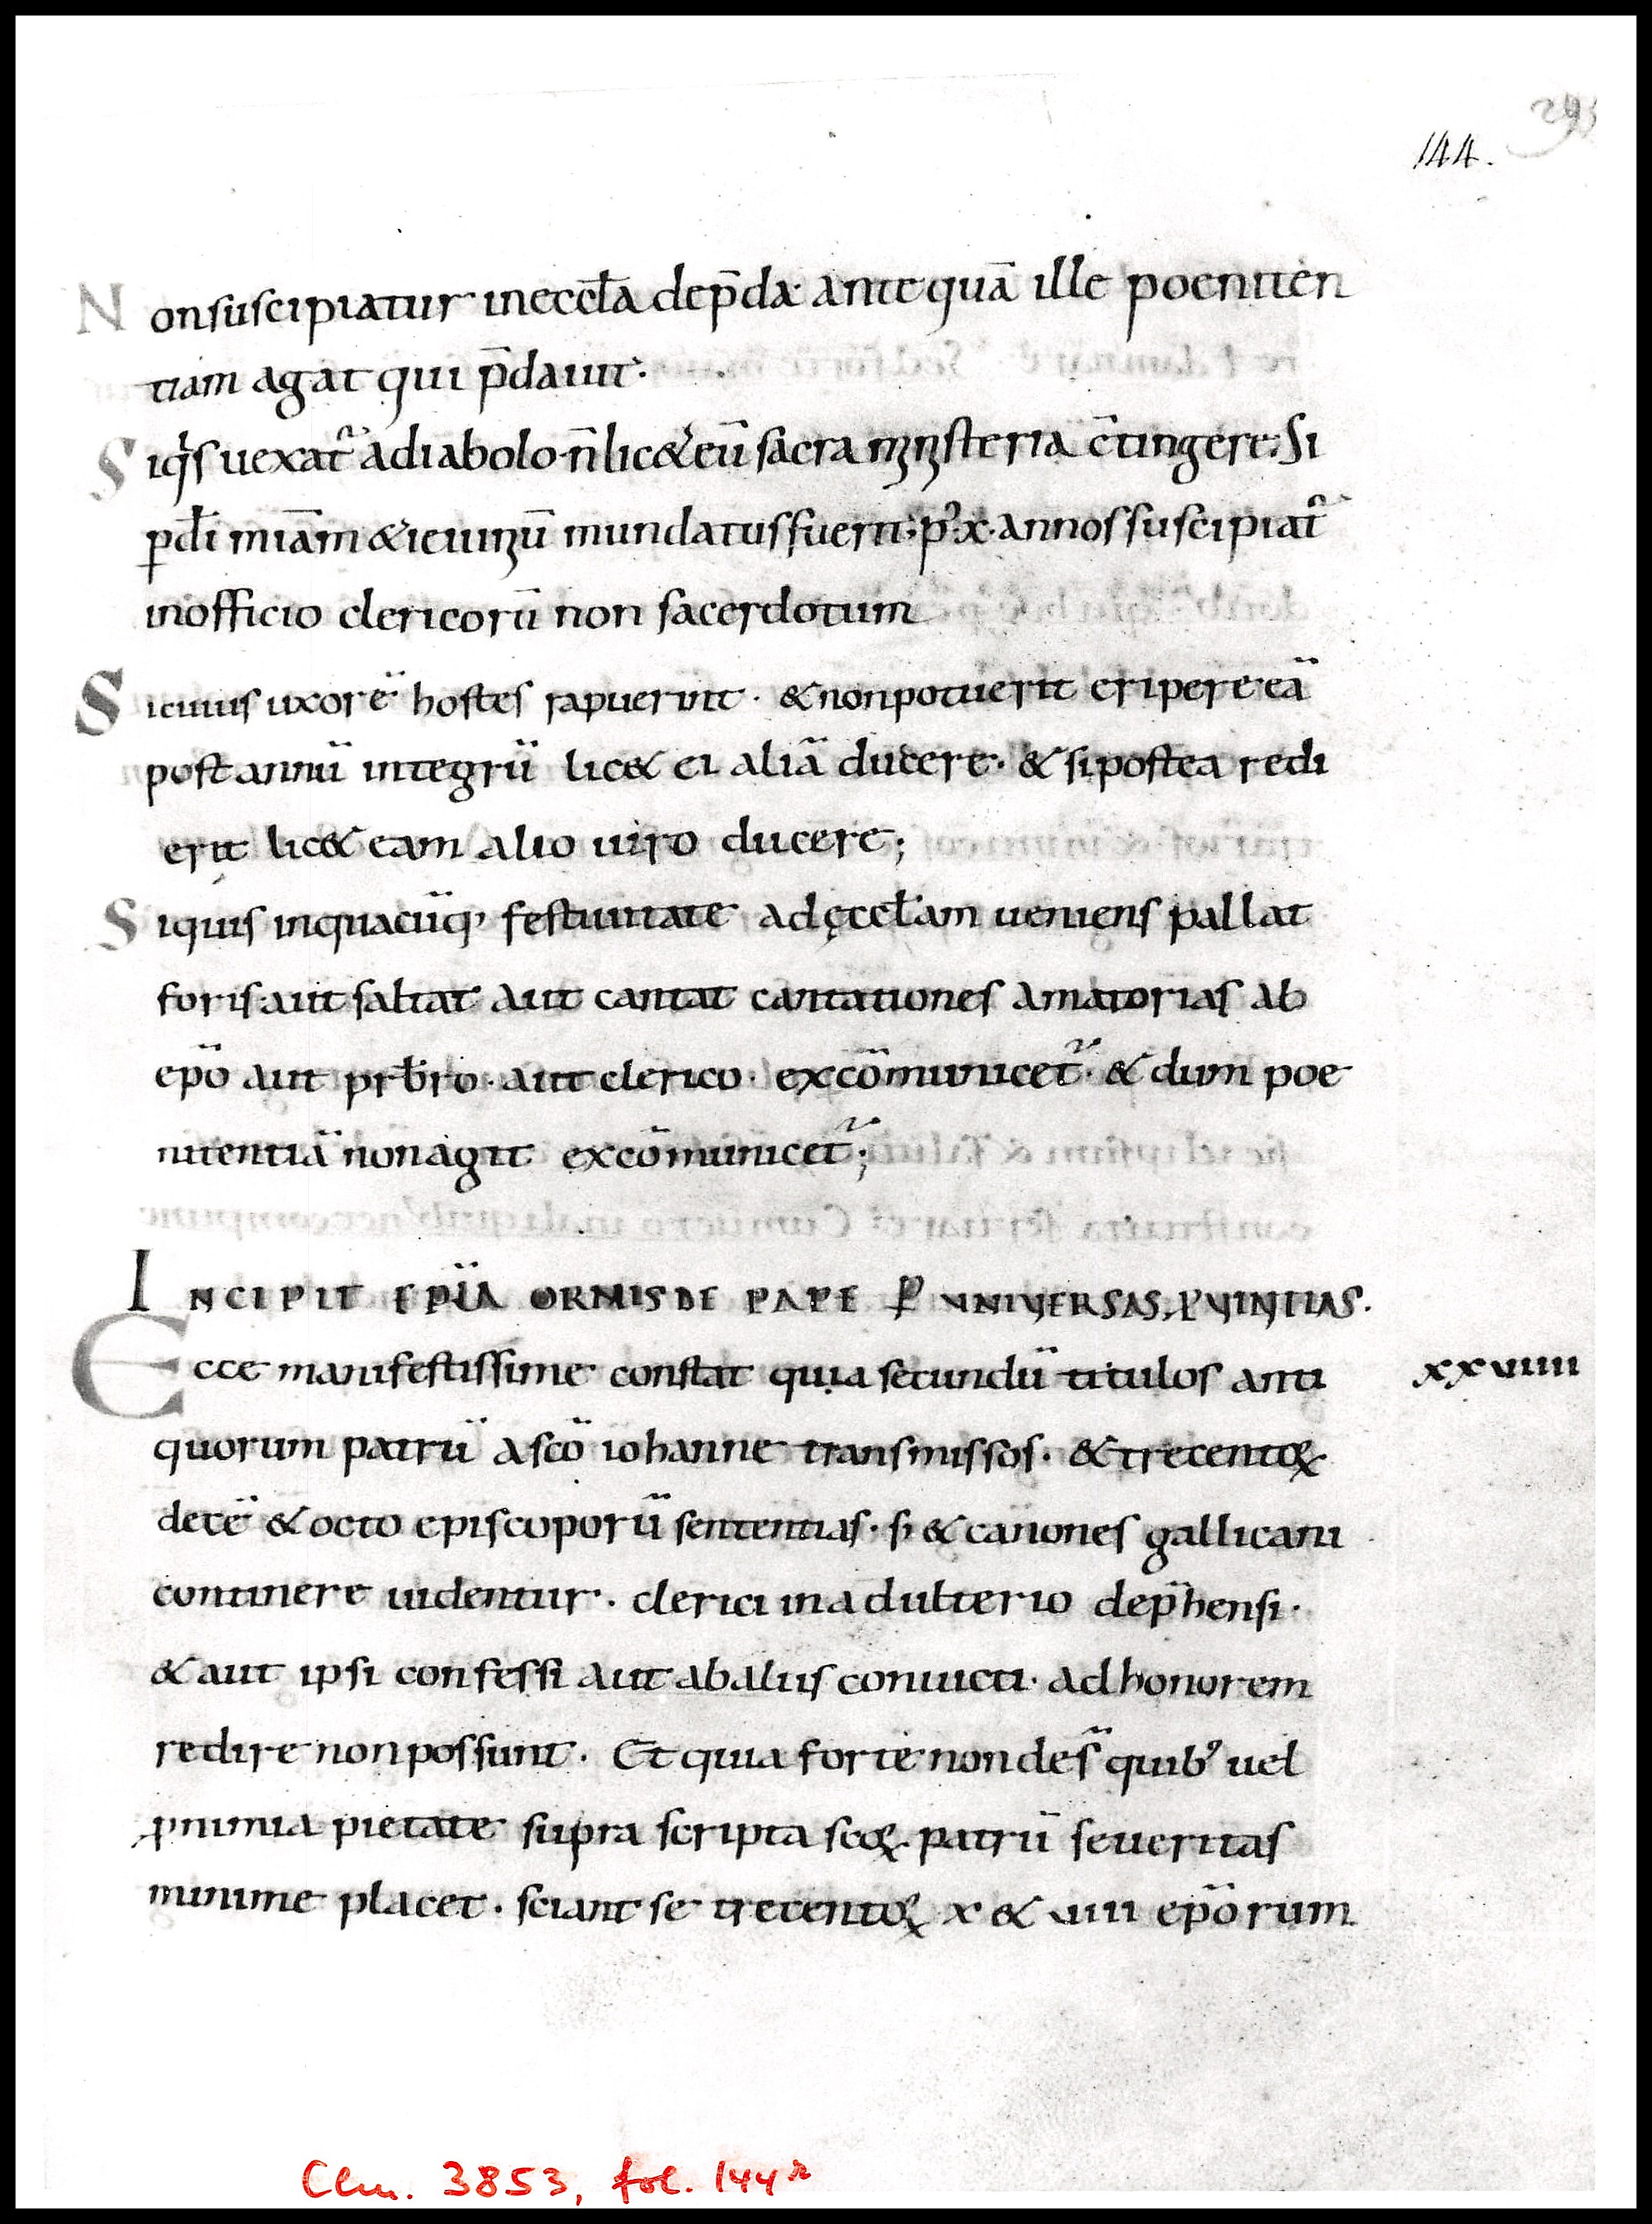 293
144.
Non suscipiatur in eccl̄a dep̄da antequā ille poeniten
tiam agat qui p̄dauit·
Siq̇s uexat᷑ a diabolo· n̄ lic& eū sacra mysteria c̄tingere; Si
p dī miām & ieiuniū mundatus fuerit; pꝰ·x·annos suscipiat᷑
in officio clericorū non sacerdotum
Si cuius uxorē hostes rapuerint· & non potuerit eripere eā
post annū integrū lic& ei aliā ducere· & si postea redi
erit lic& eam alio uiro ducere;
Si quis in quacūq; festiuitate ad ęccl̄am ueniens psallat
foris aut saltat aut cantat cantationes amatorias ab
ep̄o aut pr̄bro· aut clerico· excōmunicet᷑· & dum poe
nitentiā non agit excōmunicet᷑;
INCIPIT EPL̄A ORMISDE PAPE P VNIVERSAS PVINTIAS·
Ecce manifestissime constat quia secundū titulos anti
xxviiii
quorum patrū a sc̄o iohanne transmissos· & trecentoꝝ
decē & octo episcoporū sententias· s; & canones gallicani
continere uidentur· clerici in adulterio dep̄hensi·
& aut ipsi confessi aut ab aliis conuicti· ad honorem
redire non possunt· Et quia forte non des̄ quibꝰ uel
ꝓ nimia pietate supra scripta sc̄oꝝ patrū seueritas
minime placet· sciant se trecentoꝝ x & uiii ep̄orum
Clm. 3853, fol. 144r